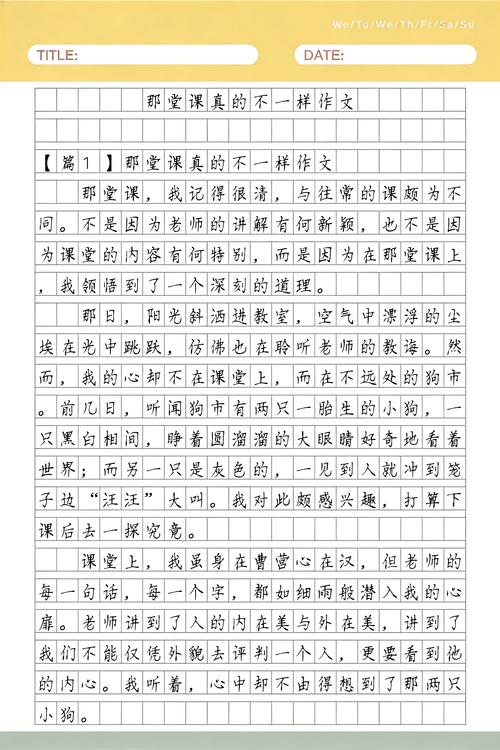 We/Tu/We/Th/Fr/Sa/Su
TITLE:
DATE:
那堂课真的不一样作文
【篇1】那堂课真的不一样作文
那堂课，我记得很清，与往常的课颇为不
同。不是因为老师的讲解有何新颖，也不是因
为课堂的内容有何特别，而是因为在那堂课上
，我领悟到了一个深刻的道理。
那日，阳光斜洒进教室，空气中漂浮的尘
埃在光中跳跃，仿佛也在聆听老师的教诲。然
而，我的心却不在课堂上，而在不远处的狗市
。前几日，听闻狗市有两只一胎生的小狗，一
只黑白相间，睁着圆溜溜的大眼睛好奇地看着
世界；而另一只是灰色的，一见到人就冲到笼
子边“汪汪”大叫。我对此颇感兴趣，打算下
课后去一探究竟。
课堂上，我虽身在曹营心在汉，但老师的
每一句话，每一个字，都如细雨般潜入我的心
扉。老师讲到了人的内在美与外在美，讲到了
我们不能仅凭外貌去评判一个人，更要看到他
的内心。我听着，心中却不由得想到了那两只
小狗。